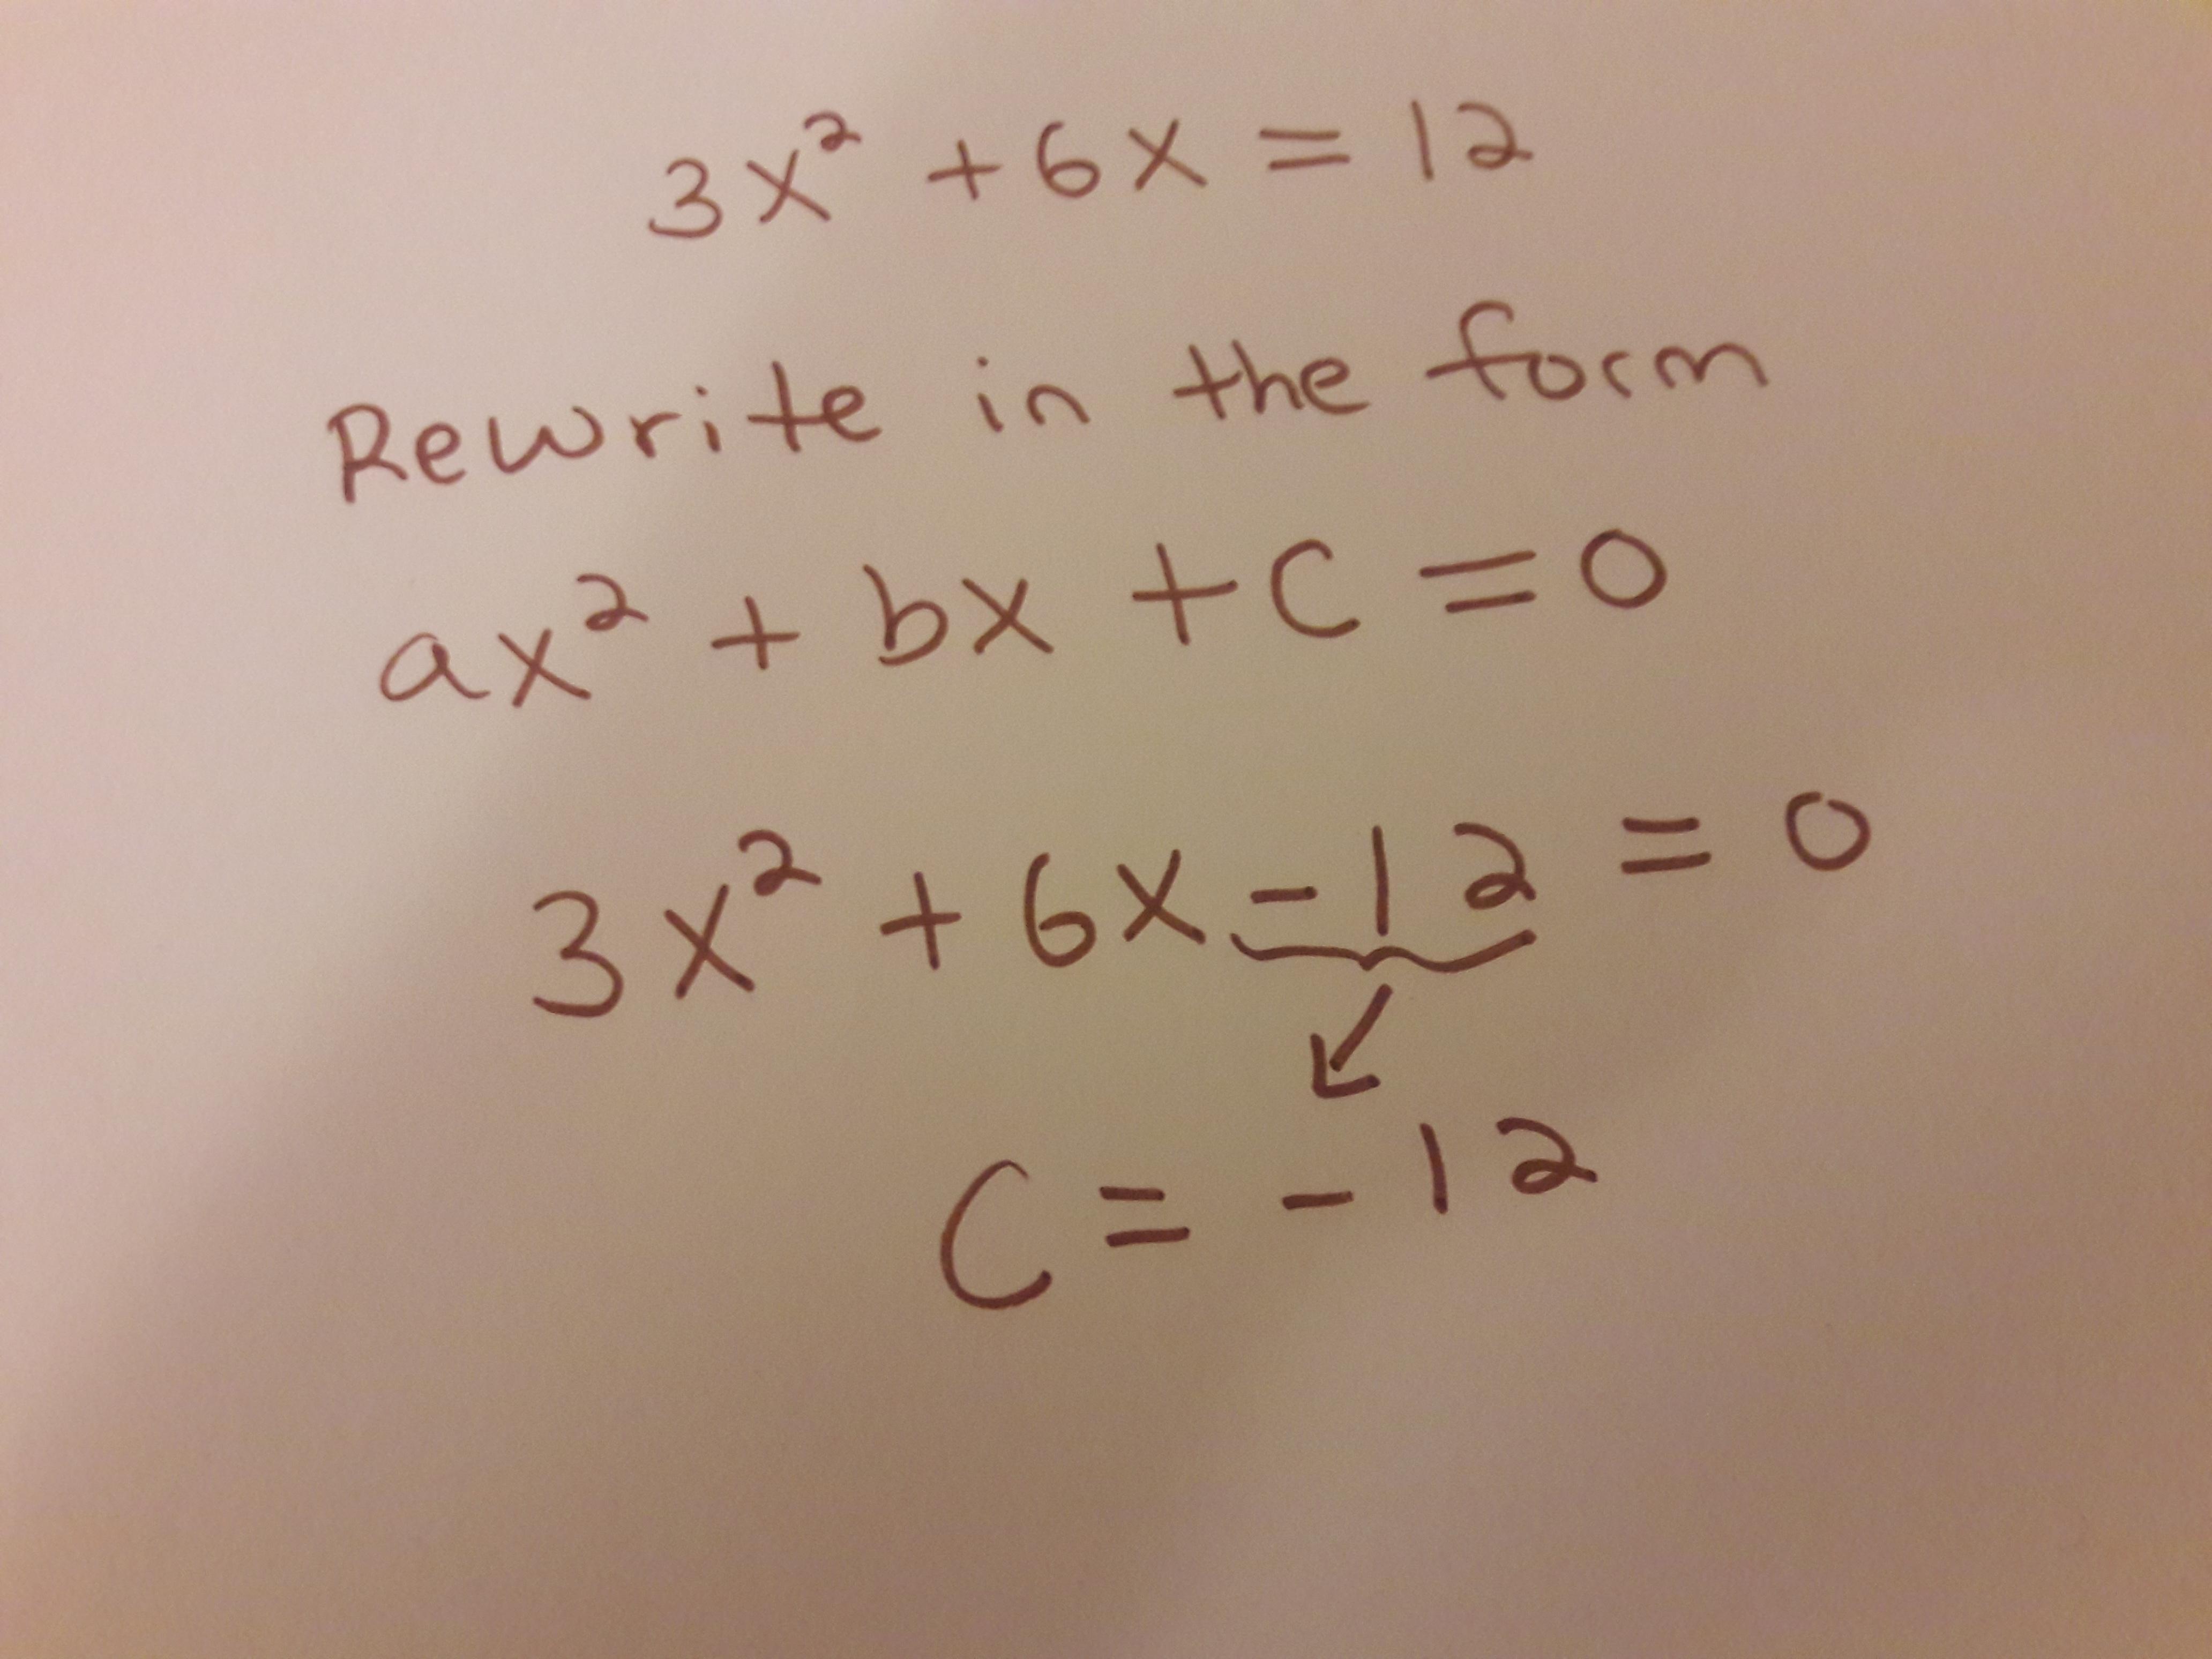 3x² + 6x = 12
Rewrite in the form
ax² + bx + c = 0
3x² + 6x - 12 = 0
C = - 12